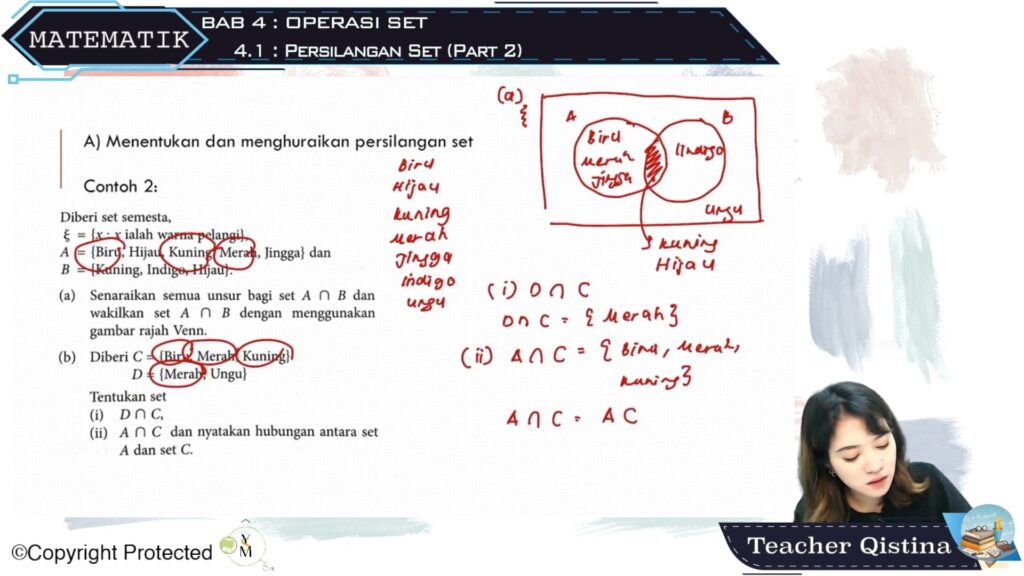 MATEMATIK
BAB 4 : OPERASI SET
4.1 : PERSILANGAN SET (PART 2)
A) Menentukan dan menghuraikan persilangan set
Contoh 2:
Diberi set semesta,
ξ = {x : x ialah warna pelangi},
A = {Biru, Hijau, Kuning, Merah, Jingga} dan
B = {Kuning, Indigo, Hijau}.
(a) Senaraikan semua unsur bagi set A ∩ B dan
wakilkan set A ∩ B dengan menggunakan
gambar rajah Venn.
(b) Diberi C = {Biru, Merah, Kuning}
D = {Merah, Ungu}
Tentukan set
(i) D ∩ C,
(ii) A ∩ C dan nyatakan hubungan antara set
A dan set C.
Biru
Hijau
Kuning
Merah
Jingga
Indigo
Ungu
(a)
ξ
A
B
Biru
Merah
Jingga
Indigo
Ungu
Kuning
Hijau
(i) D ∩ C
D ∩ C = {Merah}
(ii) A ∩ C = {Biru, Merah,
Kuning}
A ∩ C = A C
©Copyright Protected
YM
Teacher Qistina